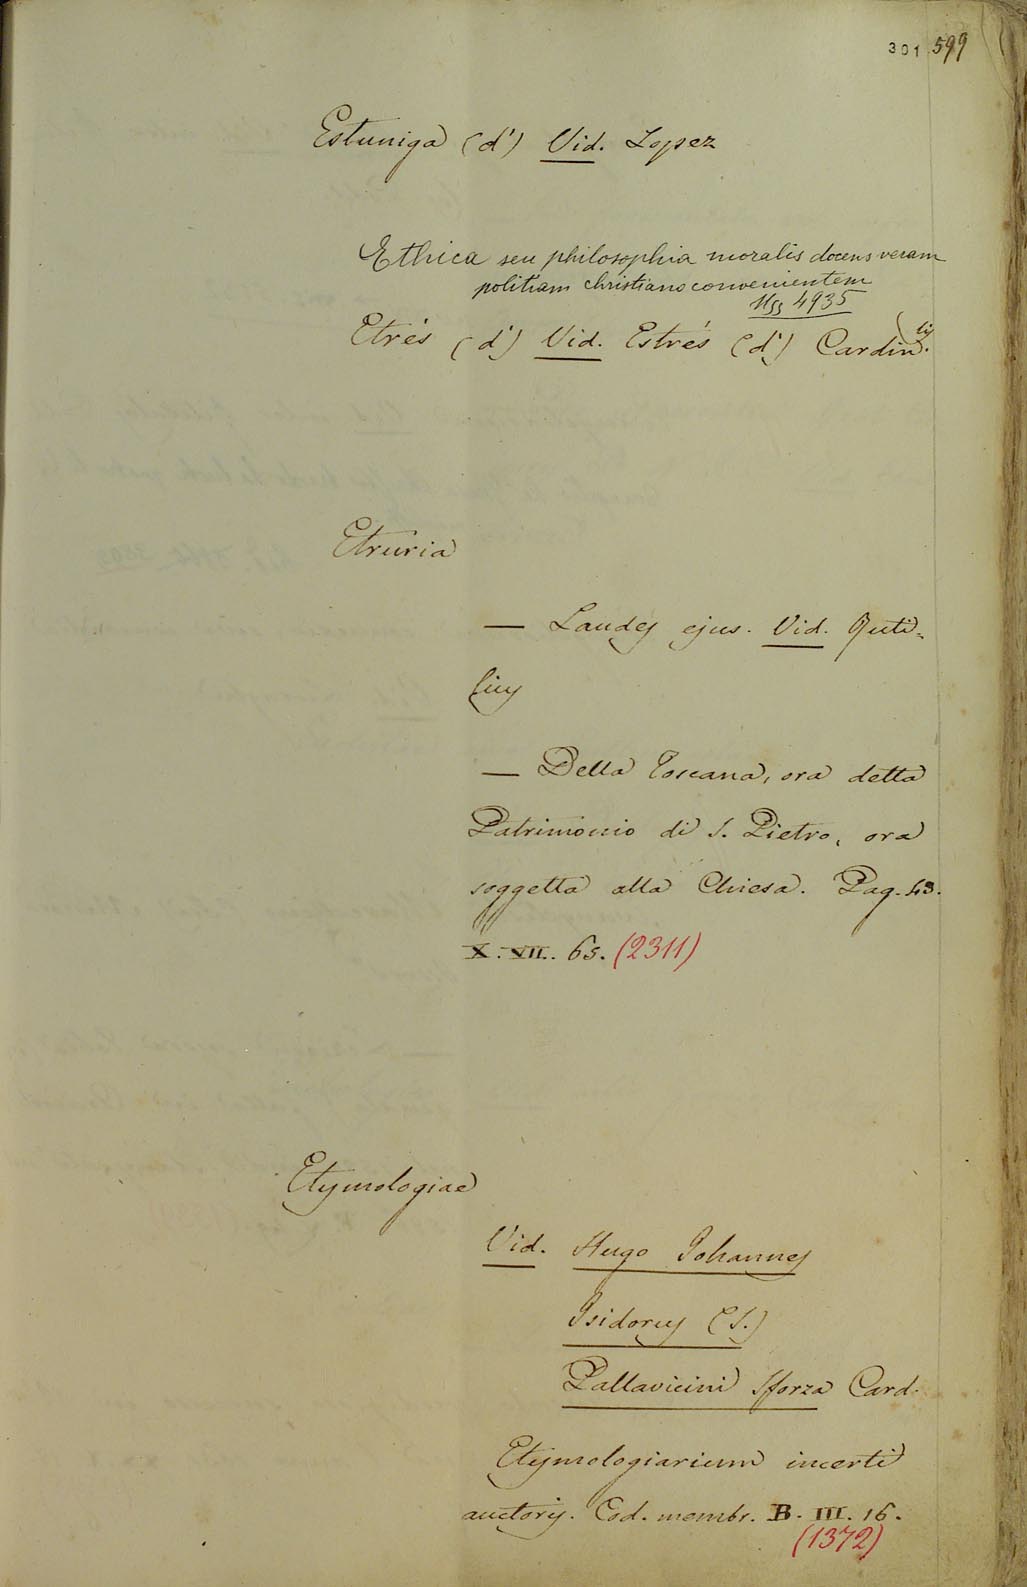 301 599
Estuniga (d') Vid. Lopez
Ethica seu philosophia moralis docens veram
politiam christiano convenientem
Mss 4935
Etrés (d') Vid. Estrés (d') Cardin.lis
Etruria
— Laudes ejus. Vid. Ruti-
lius
— Della Toscana, ora detta
Patrimonio di S. Pietro, ora
soggetta alla Chiesa. Pag. 43.
X. VII. 65. (2311)
Etymologiae
Vid. Hugo Johannes
Isidorus (S.)
Pallavicini Sforza Card.
Etymologiarium incerti
auctoris. Cod. membr. B. III. 16.
(1372)